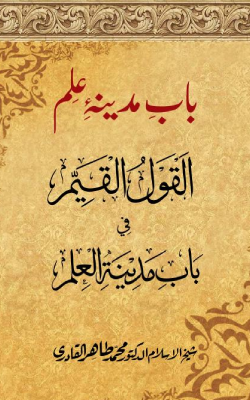 بابِ مدینۂ علم
اَلْقَوْلُ الْقَيِّم
فِي
بَابِ مَدِيْنَةِ الْعِلْم
شیخ الاسلام الدکتور محمد طاهر القادری